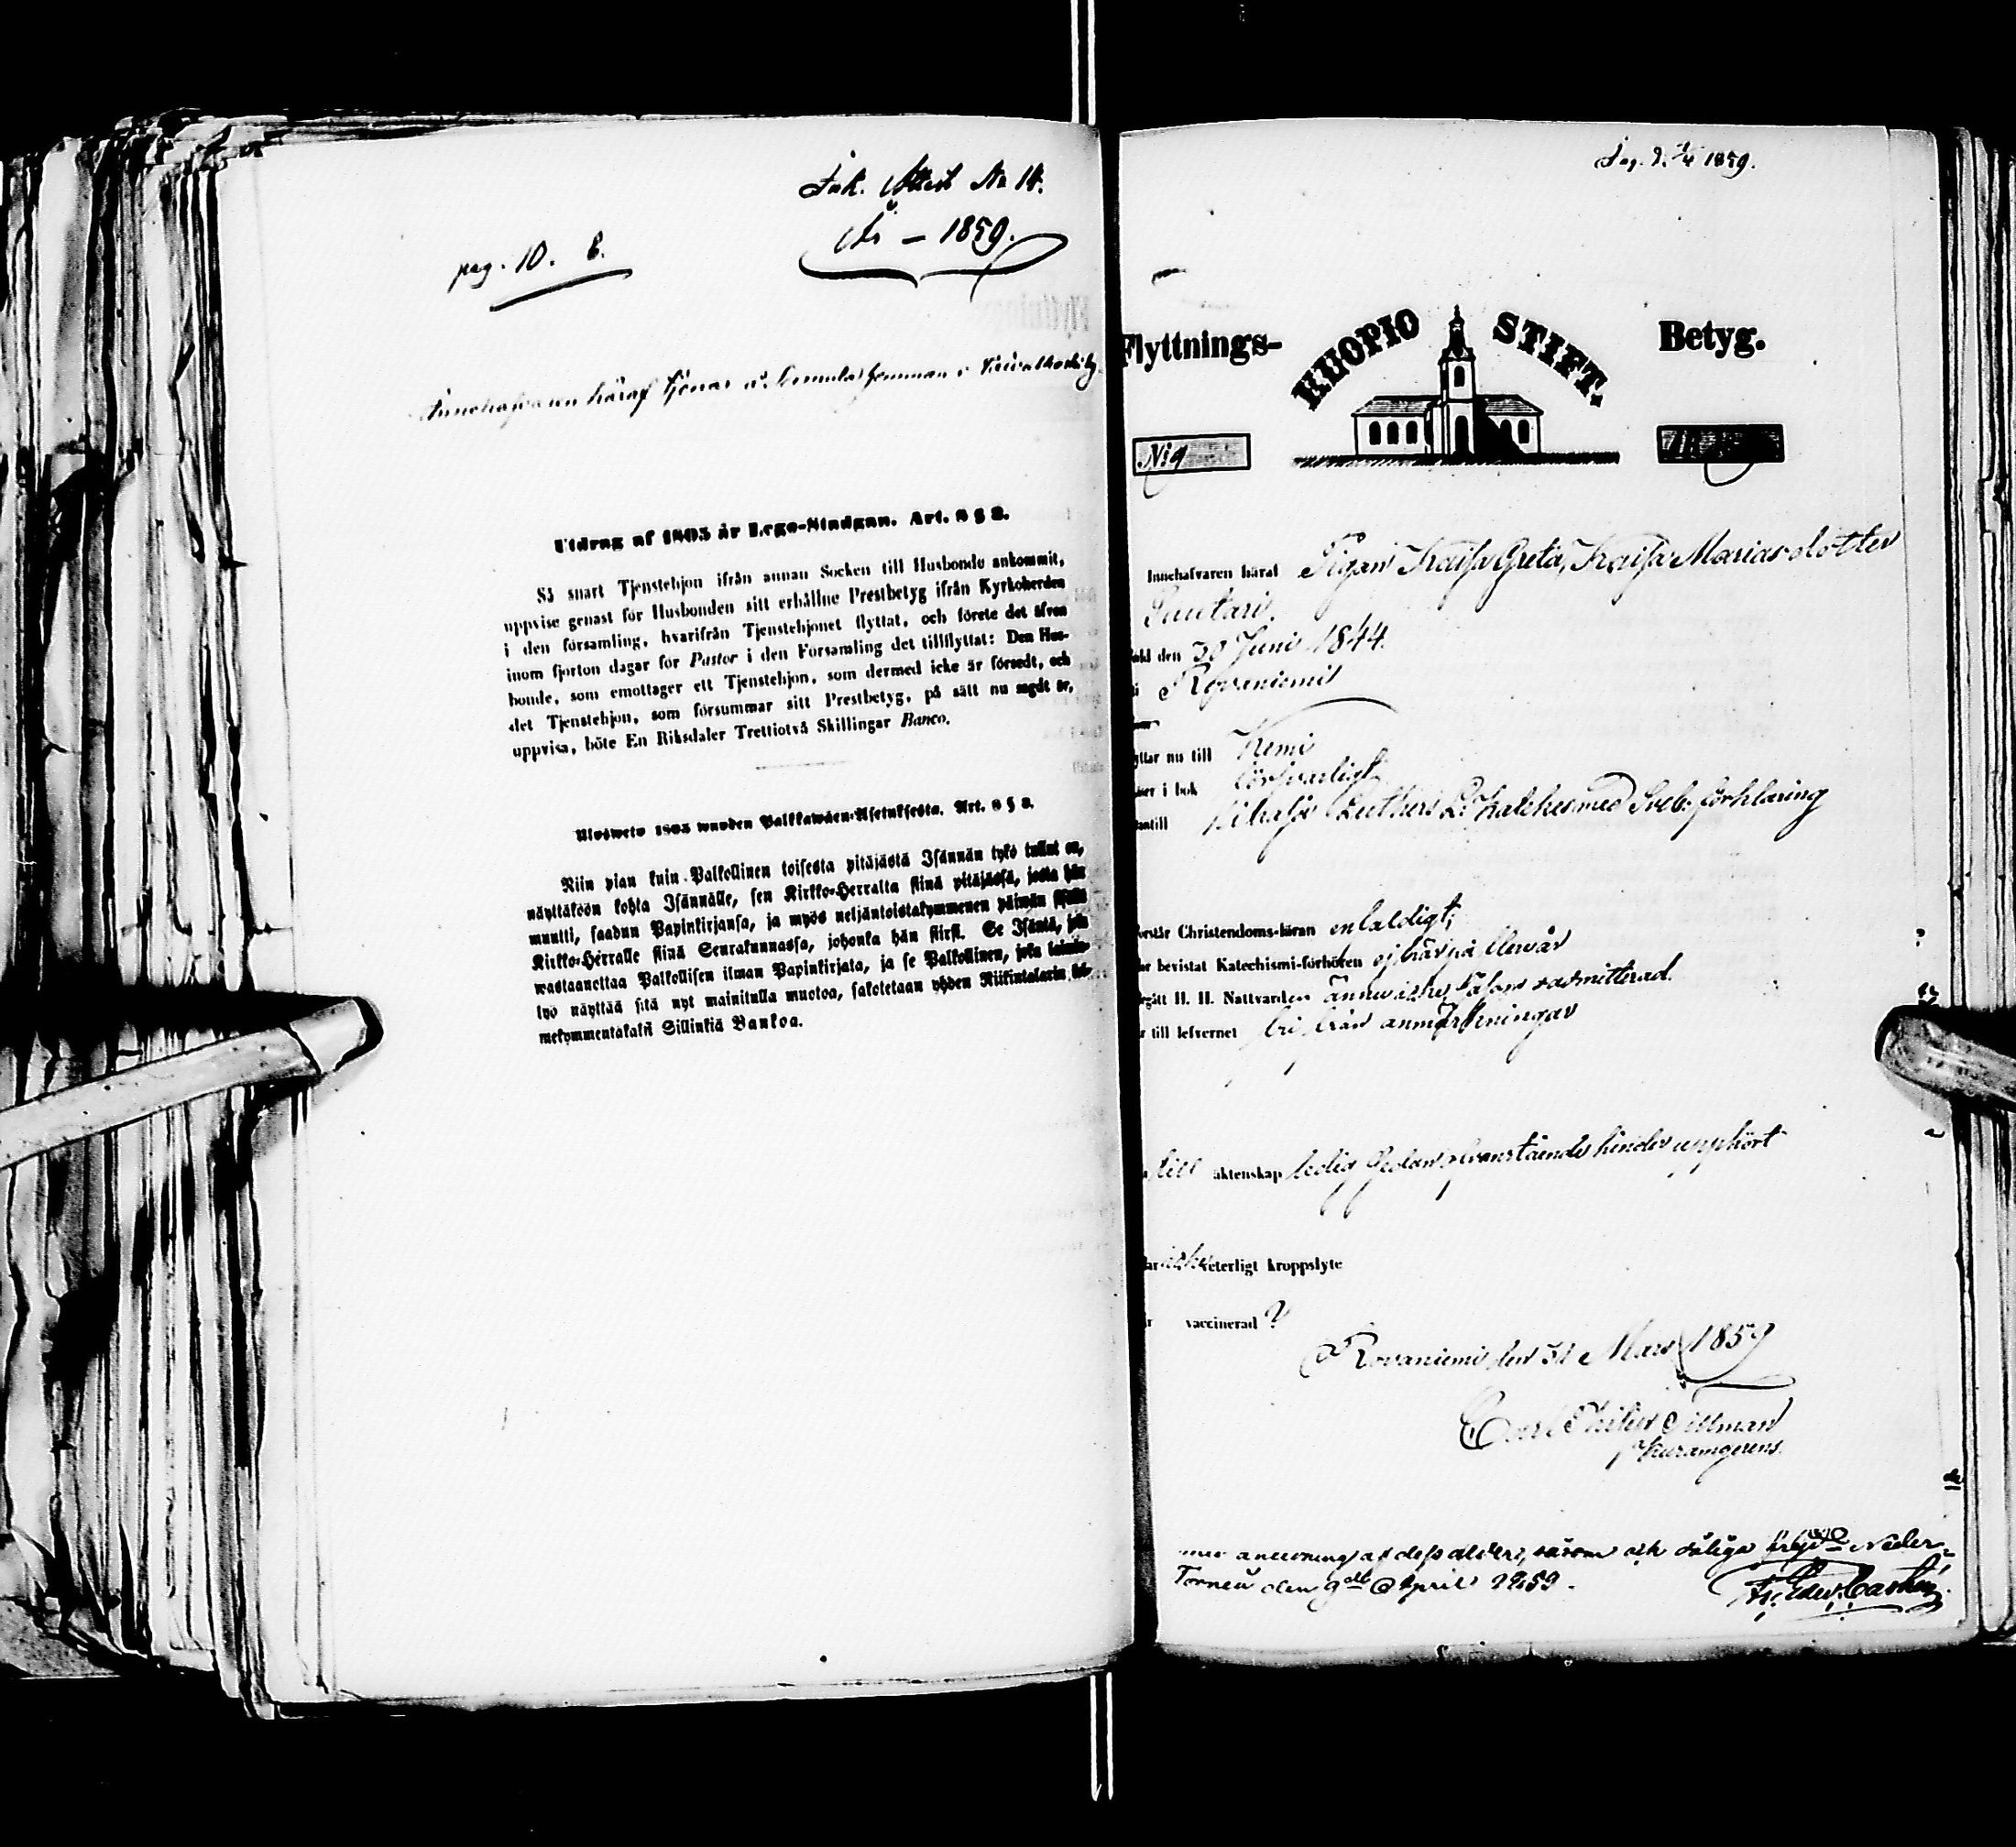 Ink. Attest No 14.
År – 1859.
pag. 10. 8.
Innehafvaren häraf tjenar å hemman i
Utdrag af 1805 år Lego-Stadgan. Art. 8 § 2.
Så snart Tjenstehjon ifrån annan Socken till Husbonde ankommit,
uppvise genast för Husbonden sitt erhållne Prestbetyg ifrån Kyrkoherden
i den församling, hvarifrån Tjenstehjonet flyttat, och förete det äfven
inom fjorton dagar för Pastor i den Församling det tillflyttat: Den Hus-
bonde, som emottager ett Tjenstehjon, som dermed icke är försedt, och
det Tjenstehjon, som försummar sitt Prestbetyg, på sätt nu sagdt är,
uppvisa, böte En Riksdaler Trettiotvå Skillingar Banco.
Uloswето 1805 wuoden Palkkawäen-Asetuksesta. Art. 8 § 2.
Niin pian kuin Palkollinen toisesta pitäjästä Isännän tykö tullut on,
näyttäköön kohta Isännälle, sen Kirkko-Herralta siinä pitäjässä, josta hän
muutti, saadun Papinkirjansa, ja myös neljäntoistakymmenen päiwän sisällä
Kirkko-Herralle siinä Seurakunnassa, johonka hän siirsi. Se Isäntä, joka
wastaanottaa Palkollisen ilman Papinkirjata, ja se Palkollinen, joka laimin-
lyö näyttää sitä nyt mainitulla muotoa, sakotetaan yhden Riikintalarin kol-
mekymmentäkaksi Sillinkiä Bankoa.
1859.
Flyttnings- KUOPIO STIFT. Betyg.
N:o 9
Innehafvaren häraf Pigan Kaisa Greta, Kaisa Marias dotter
född den 30 Juni 1844.
i Rovaniemi
flyttar nu till Kemi
läser i bok försvarligt
utantill Luthers L. Kateches med Sveb. förklaring
förstår Christendoms-läran enfaldigt;
har bevistat Katechismi-förhören ej här på flera år
begått H. H. Nattvarden ännu icke admitterad.
till lefvernet fri från anmärkningar
till äktenskap ledig sedan ofvanstående hinder upphört
har icke veterligt kroppslyte
är vaccinerad ?
Rovaniemi den 31 Mars 1859
Carl Tillman
med anledning af dess ålder, såsom och Neder-
Torneå den 9de April 1859.